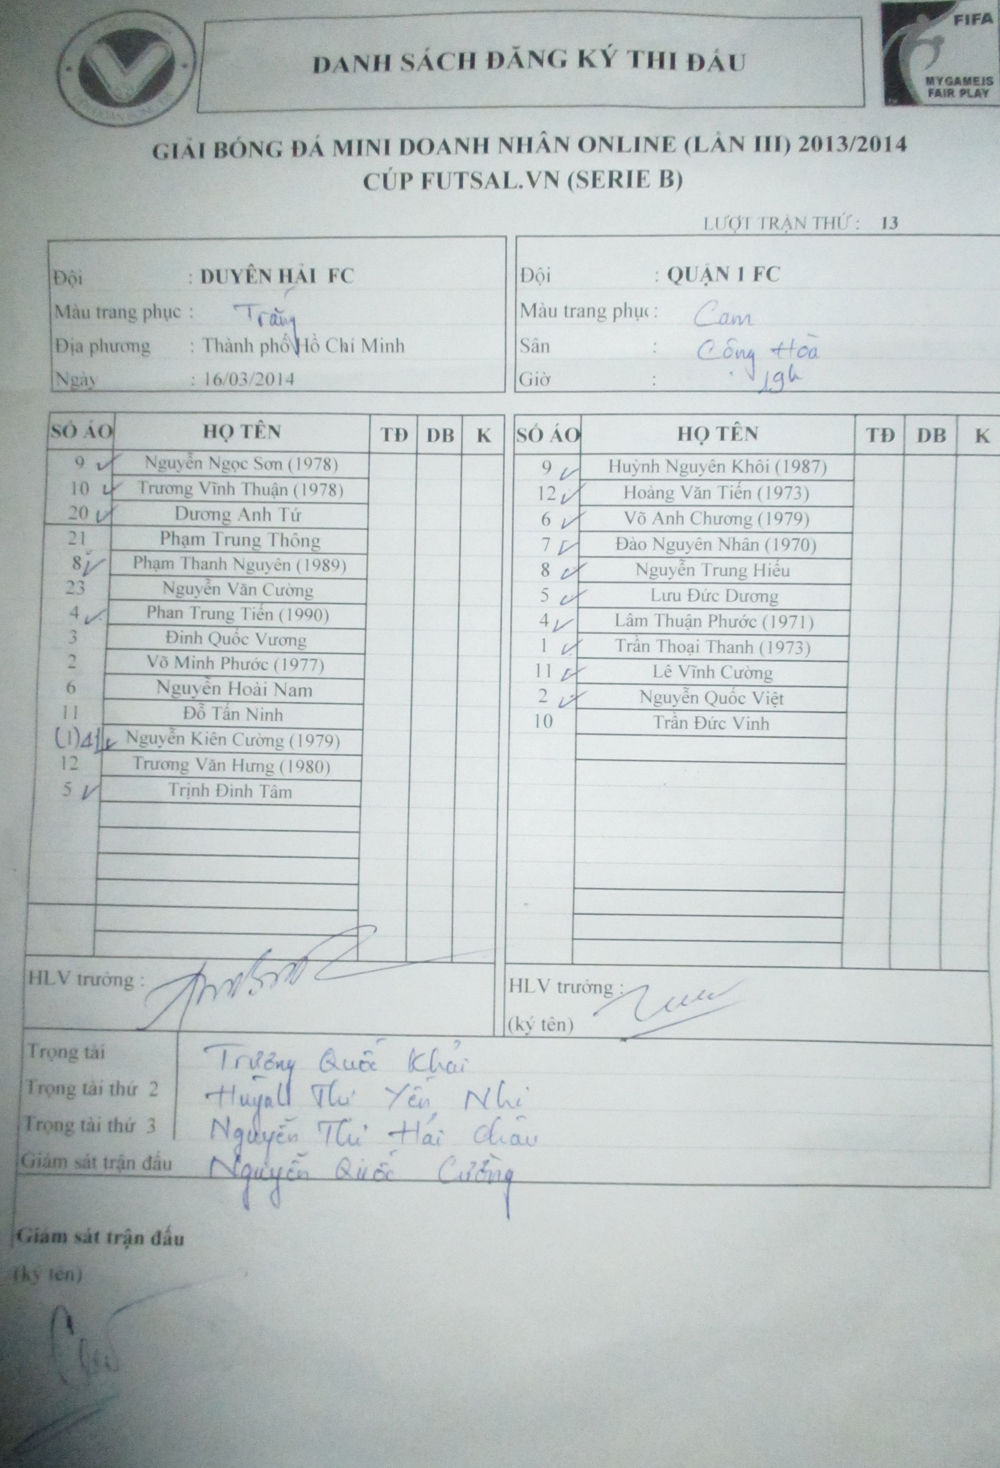 DANH SÁCH ĐĂNG KÝ THI ĐẤU
FIFA
MY GAME IS
FAIR PLAY
GIẢI BÓNG ĐÁ MINI DOANH NHÂN ONLINE (LẦN III) 2013/2014
CÚP FUTSAL.VN (SERIE B)
LƯỢT TRẬN THỨ : 13
Đội : DUYÊN HẢI FC
Màu trang phục : Trắng
Địa phương : Thành phố Hồ Chí Minh
Ngày : 16/03/2014
Đội : QUẬN 1 FC
Màu trang phục : Cam
Sân : Cộng Hoà
Giờ : 19h
SỐ ÁO HỌ TÊN TĐ DB K
9 Nguyễn Ngọc Sơn (1978)
10 Trương Vĩnh Thuận (1978)
20 Dương Anh Tứ
21 Phạm Trung Thông
8 Phạm Thanh Nguyên (1989)
23 Nguyễn Văn Cường
4 Phan Trung Tiến (1990)
3 Đinh Quốc Vương
2 Võ Minh Phước (1977)
6 Nguyễn Hoài Nam
11 Đỗ Tấn Ninh
(1) Nguyễn Kiên Cường (1979)
12 Trương Văn Hưng (1980)
5 Trịnh Đình Tâm
SỐ ÁO HỌ TÊN TĐ DB K
9 Huỳnh Nguyên Khôi (1987)
12 Hoàng Văn Tiến (1973)
6 Võ Anh Chương (1979)
7 Đào Nguyên Nhân (1970)
8 Nguyễn Trung Hiếu
5 Lưu Đức Dương
4 Lâm Thuận Phước (1971)
1 Trần Thoại Thanh (1973)
11 Lê Vĩnh Cường
2 Nguyễn Quốc Việt
10 Trần Đức Vinh
HLV trưởng :
HLV trưởng :
(ký tên)
Trọng tài Trương Quốc Khải
Trọng tài thứ 2 Huỳnh Thị Yến Nhi
Trọng tài thứ 3 Nguyễn Thị Hải Châu
Giám sát trận đấu Nguyễn Quốc Cường
Giám sát trận đấu
(ký tên)